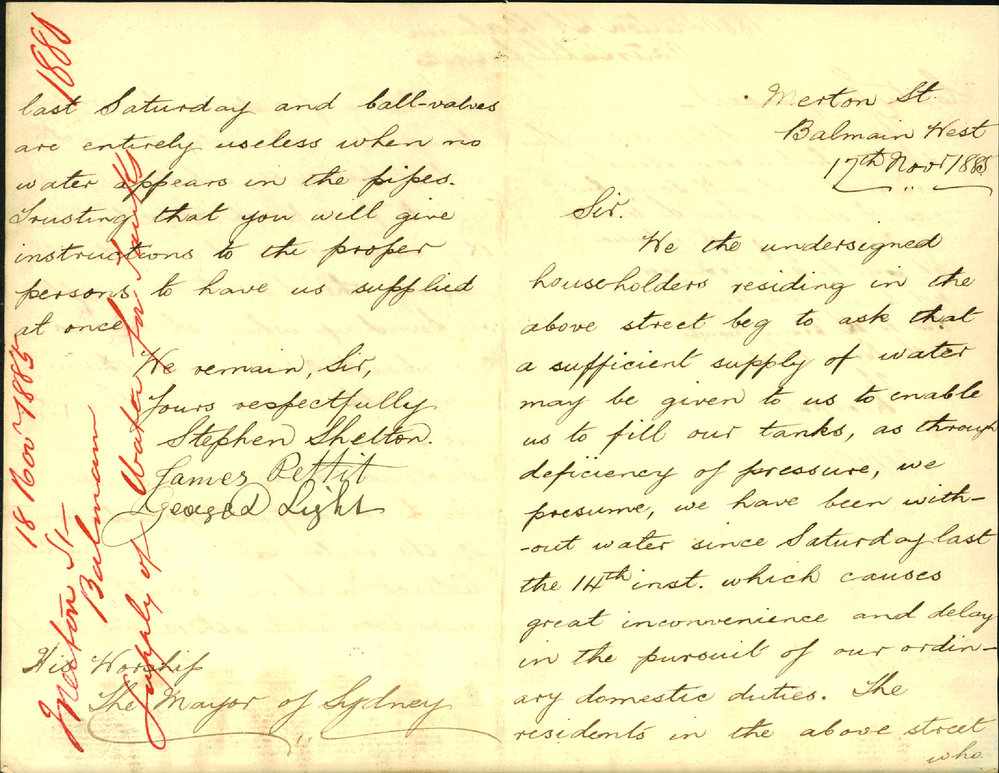 Merton St.
Balmain West
17th Novr 1885
Sir.
We the undersigned
householders residing in the
above street beg to ask that
a sufficient supply of water
may be given to us to enable
us to fill our tanks, as through
deficiency of pressure, we
presume, we have been with-
-out water since Saturday last
the 14th inst. which causes
great inconvenience and delay
in the pursuit of our ordin-
ary domestic duties. The
residents in the above street
who
last Saturday and ball-valves
are entirely useless when no
water appears in the pipes.
Trusting that you will give
instructions to the proper
persons to have us supplied
at once
We remain, Sir,
Yours respectfully
Stephen Shelton.
James Pettit
George D Light
His Worship
The Mayor of Sydney
1881
18 Nov 1885
Merton St-
Balmain
Supply of Water for tanks